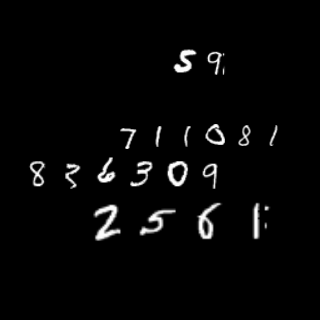 59
711081
836309
2561